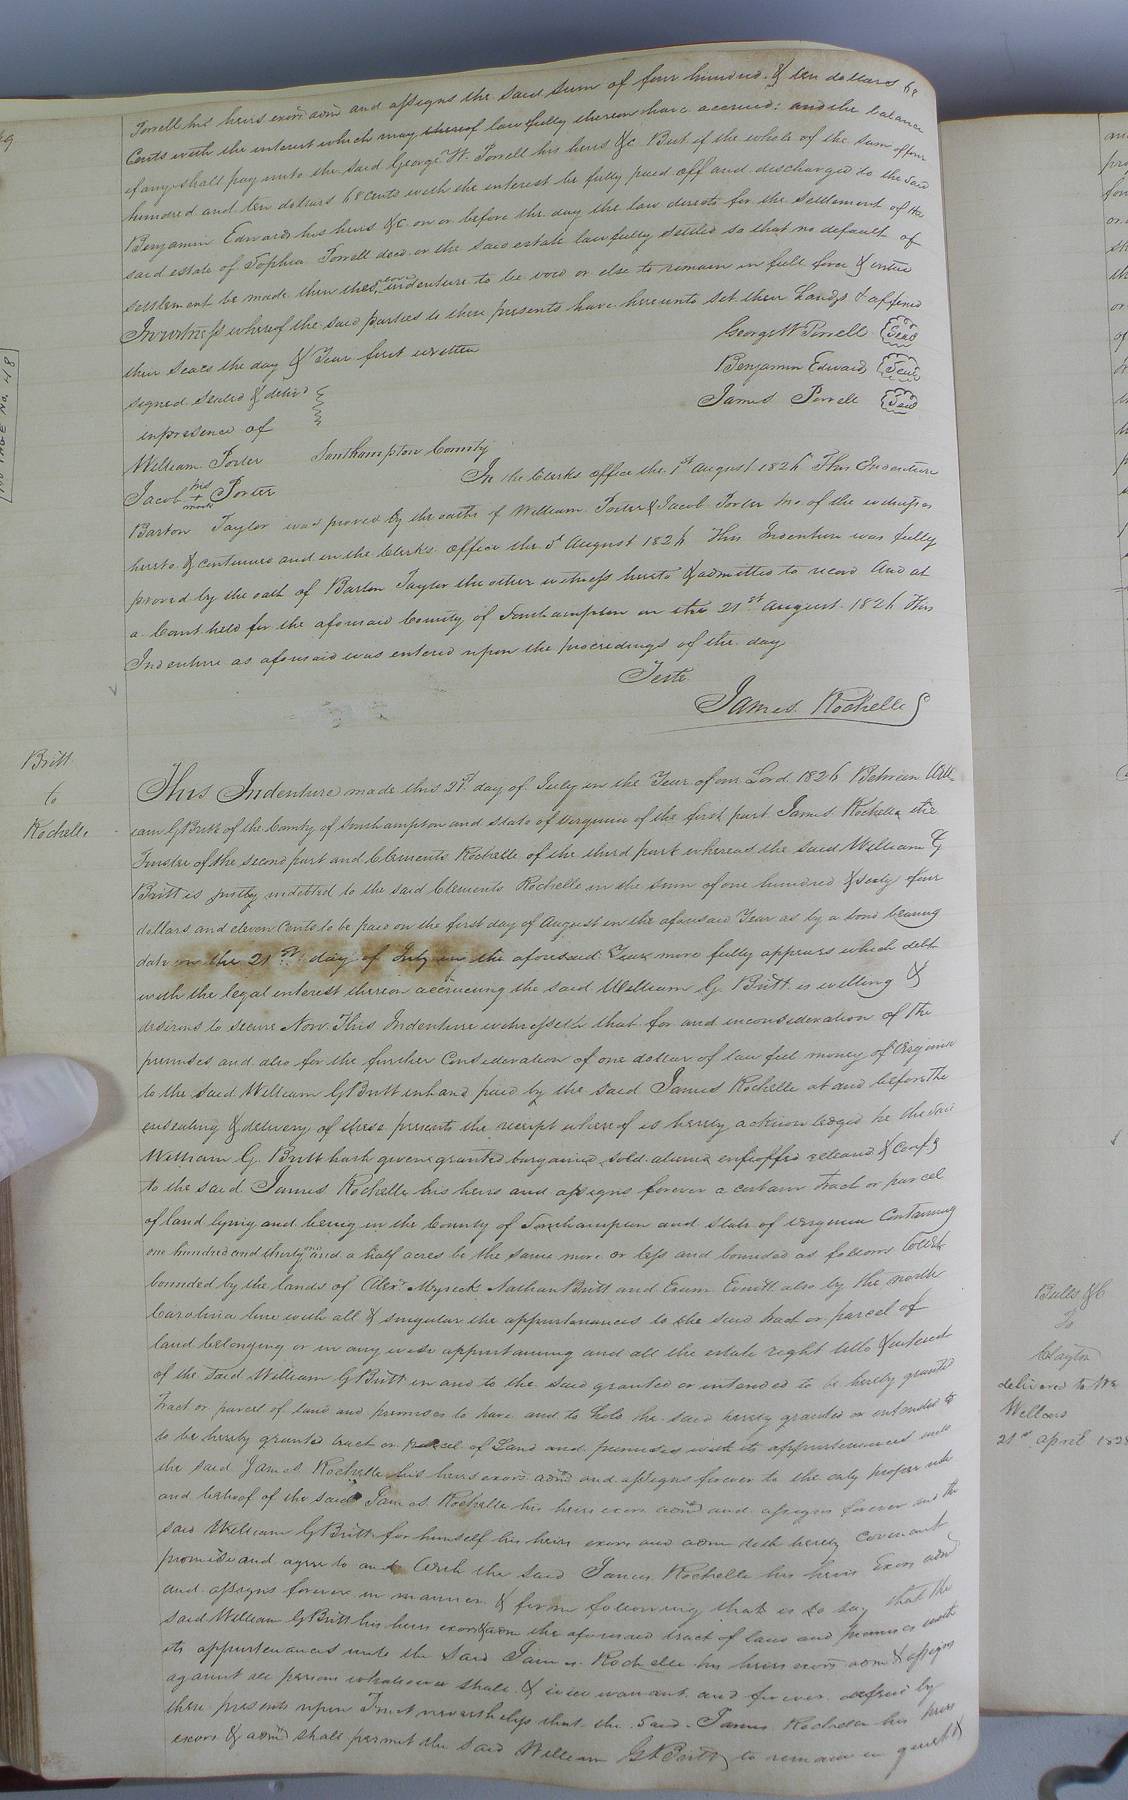 Powell his heirs exors admr and assigns the said sum of four hundred & ten dollars 68
Cents with the interest which may thereof lawfully thereon have accrued: and the balance
if any shall pay unto the said George W. Powell his heirs &c But if the whole of the sum of four
hundred and ten dollars 68 cents with the interest be fully paid off and discharged to the said
Benjamin Edwards his heirs &c on or before the day the law directs for the settlement of the
said estate of Sophia Powell decd or the said estate lawfully settled so that no default of
settlement be made then this above indenture to be void or else to remain in full force & virtue
In witness whereof the said parties to these presents have hereunto set their hands & affixed
their seals the day & Year first written
George W Powell Seal
Benjamin Edwards Seal
James Powell Seal
signed Sealed & delivd
in presence of
William Porter
Jacob his + mark Porter
Southampton County
In the Clerks office the 1st August 1826 This Indenture
Barton Taylor was proved by the oaths of William Porter & Jacob Porter two of the witnesses
hereto & continued and in the Clerks office the 5th August 1826 This Indenture was fully
proved by the oath of Barton Taylor the other witness hereto & admitted to record And at
a Court held for the aforesaid County of Southampton on the 21st August 1826 This
Indenture as aforesaid was entered upon the proceedings of the day
Teste
James Rochelle
Britt
to
Rochelle
This Indenture made this 21st day of July in the Year of our Lord 1826 Between Will
iam G Britt of the County of Southampton and state of Virginia of the first part James Rochelle the
Trustee of the second part and Clements Rochelle of the third part whereas the said William G
Britt is justly indebted to the said Clements Rochelle in the sum of one hundred & sixty four
dollars and eleven Cents to be paid on the first day of August in the aforesaid Year as by a bond bearing
date on the 21st day of July in the aforesaid Year more fully appears which debt
with the legal interest thereon accrueing the said William G. Britt is willing &
desirous to secure Now This Indenture witnesseth that for and in consideration of the
premises and also for the further Consideration of one dollar of law full money of Virginia
to the said William G Britt in hand paid by the said James Rochelle at and before the
ensealing & delivery of these presents the receipt whereof is hereby acknowledged he the said
William G. Britt hath given granted bargained sold aliened enfeoffed released & Confd
to the said James Rochelle his heirs and assigns forever a certain tract or parcel
of land lying and being in the County of Southampton and state of Virginia Containing
one hundred and thirty one and a half acres be the same more or less and bounded as follows towit
bounded by the lands of Alexr Myrick Nathan Britt and Exum Britt also by the north
Carolina line with all & singular the appurtenances to the said tract or parcel of
land belonging or in any wise appurtaining and all the estate right title & interest
of the said William G Britt in and to the said granted or intended to be hereby granted
tract or parcel of land and premises to have and to hold the said hereby granted or intended
to be hereby granted tract or parcel of Land and premises with its appurtenances unto
the said James Rochelle his heirs exors admr and assigns forever to the only proper use
and behoof of the said James Rochelle his heirs exors admr and assigns forever and the
said William G Britt for himself his heirs exors and adm doth hereby covenant
promise and agree to and With the said James Rochelle his heirs Exors adm
and assigns forever in manner & form following that is to say that the
said William G Britt his heirs exors & adm the aforesaid tract of land and premises with
its appurtenances unto the said James Rochelle his heirs exors adm & assigns
against all persons whatsoever shall & will warrant and forever defend by
these presents upon Trust nevertheless that the said James Rochelle his heirs
exors & admr shall permit the said William G Britt to remain in quiet &
Butts &C
to
Clayton
delivered to
21st april 1828